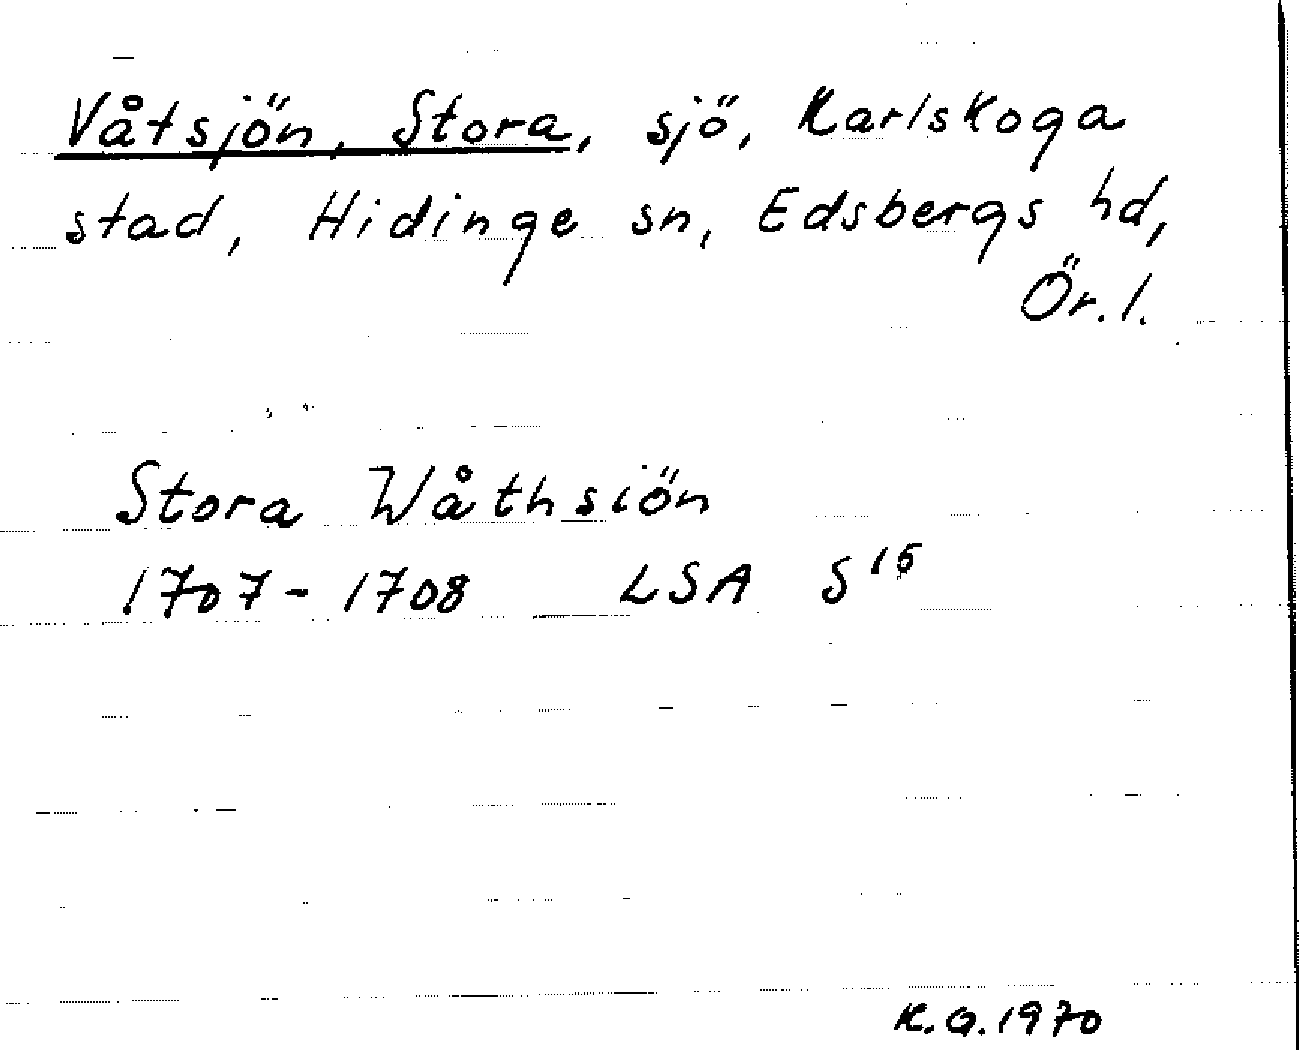 Våtsjön, Stora, sjö, Karlskoga
stad, Hidinge sn, Edsbergs hd,
Ör. l.
Stora Wåthsiön
1707-1708 LSA S¹⁵
K.G.1970